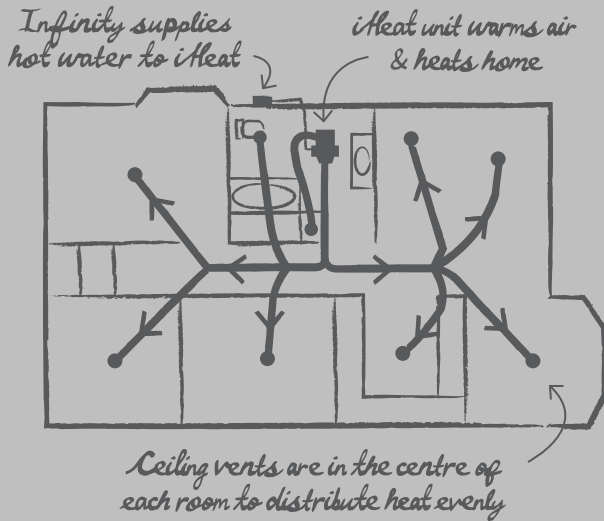 Infinity supplies
hot water to iHeat
iHeat unit warms air
& heats home
Ceiling vents are in the centre of
each room to distribute heat evenly